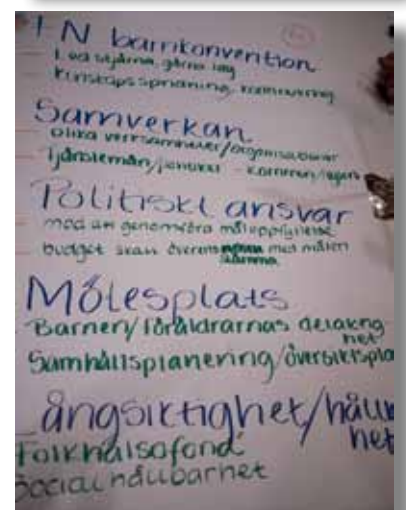 FN barnkonvention
- Led stjärna, gärna lag
- Kunskapsspridning, kommunering
Samverkan
- Olika verksamheter/organisationer
- Tjänstemän/politiker - Kommun/
Politiskt ansvar
- mod att genomföra måluppfyllelse
- budget skall överens med målen
stämma
Mötesplats
Barnen/föräldrarnas delaktig
het
Samhällsplanering/översiktspla
Långsiktighet/hållb
het
Folkhälsofond
Social hållbarhet